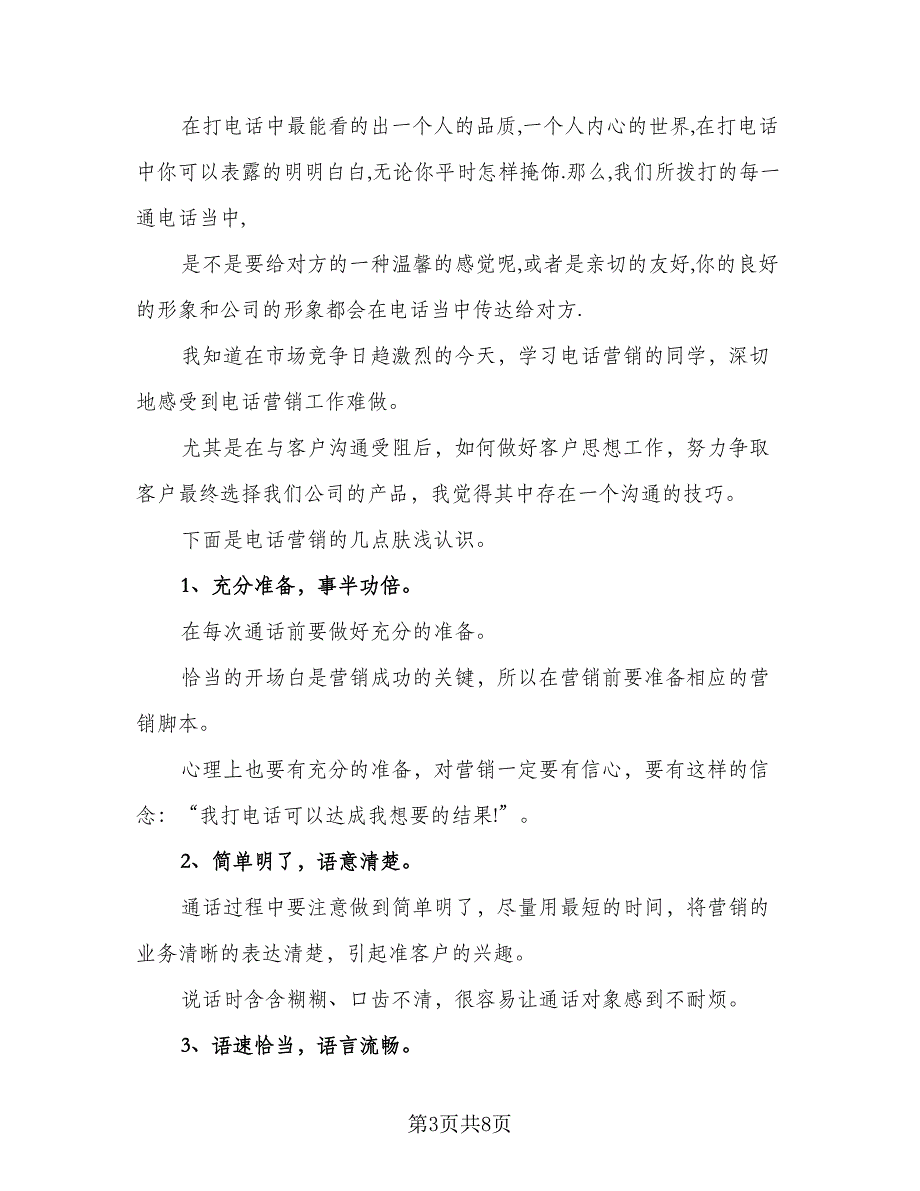 在打电话中最能看的出一个人的品质,一个人内心的世界,在打电话
中你可以表露的明明白白,无论你平时怎样掩饰.那么,我们所拨打的每一
通电话当中,
是不是要给对方的一种温馨的感觉呢,或者是亲切的友好,你的良好
的形象和公司的形象都会在电话当中传达给对方.
我知道在市场竞争日趋激烈的今天，学习电话营销的同学，深切
地感受到电话营销工作难做。
尤其是在与客户沟通受阻后，如何做好客户思想工作，努力争取
客户最终选择我们公司的产品，我觉得其中存在一个沟通的技巧。
下面是电话营销的几点肤浅认识。
1、充分准备，事半功倍。
在每次通话前要做好充分的准备。
恰当的开场白是营销成功的关键，所以在营销前要准备相应的营
销脚本。
心理上也要有充分的准备，对营销一定要有信心，要有这样的信
念：“我打电话可以达成我想要的结果!”。
2、简单明了，语意清楚。
通话过程中要注意做到简单明了，尽量用最短的时间，将营销的
业务清晰的表达清楚，引起准客户的兴趣。
说话时含含糊糊、口齿不清，很容易让通话对象感到不耐烦。
3、语速恰当，语言流畅。
第3页共8页